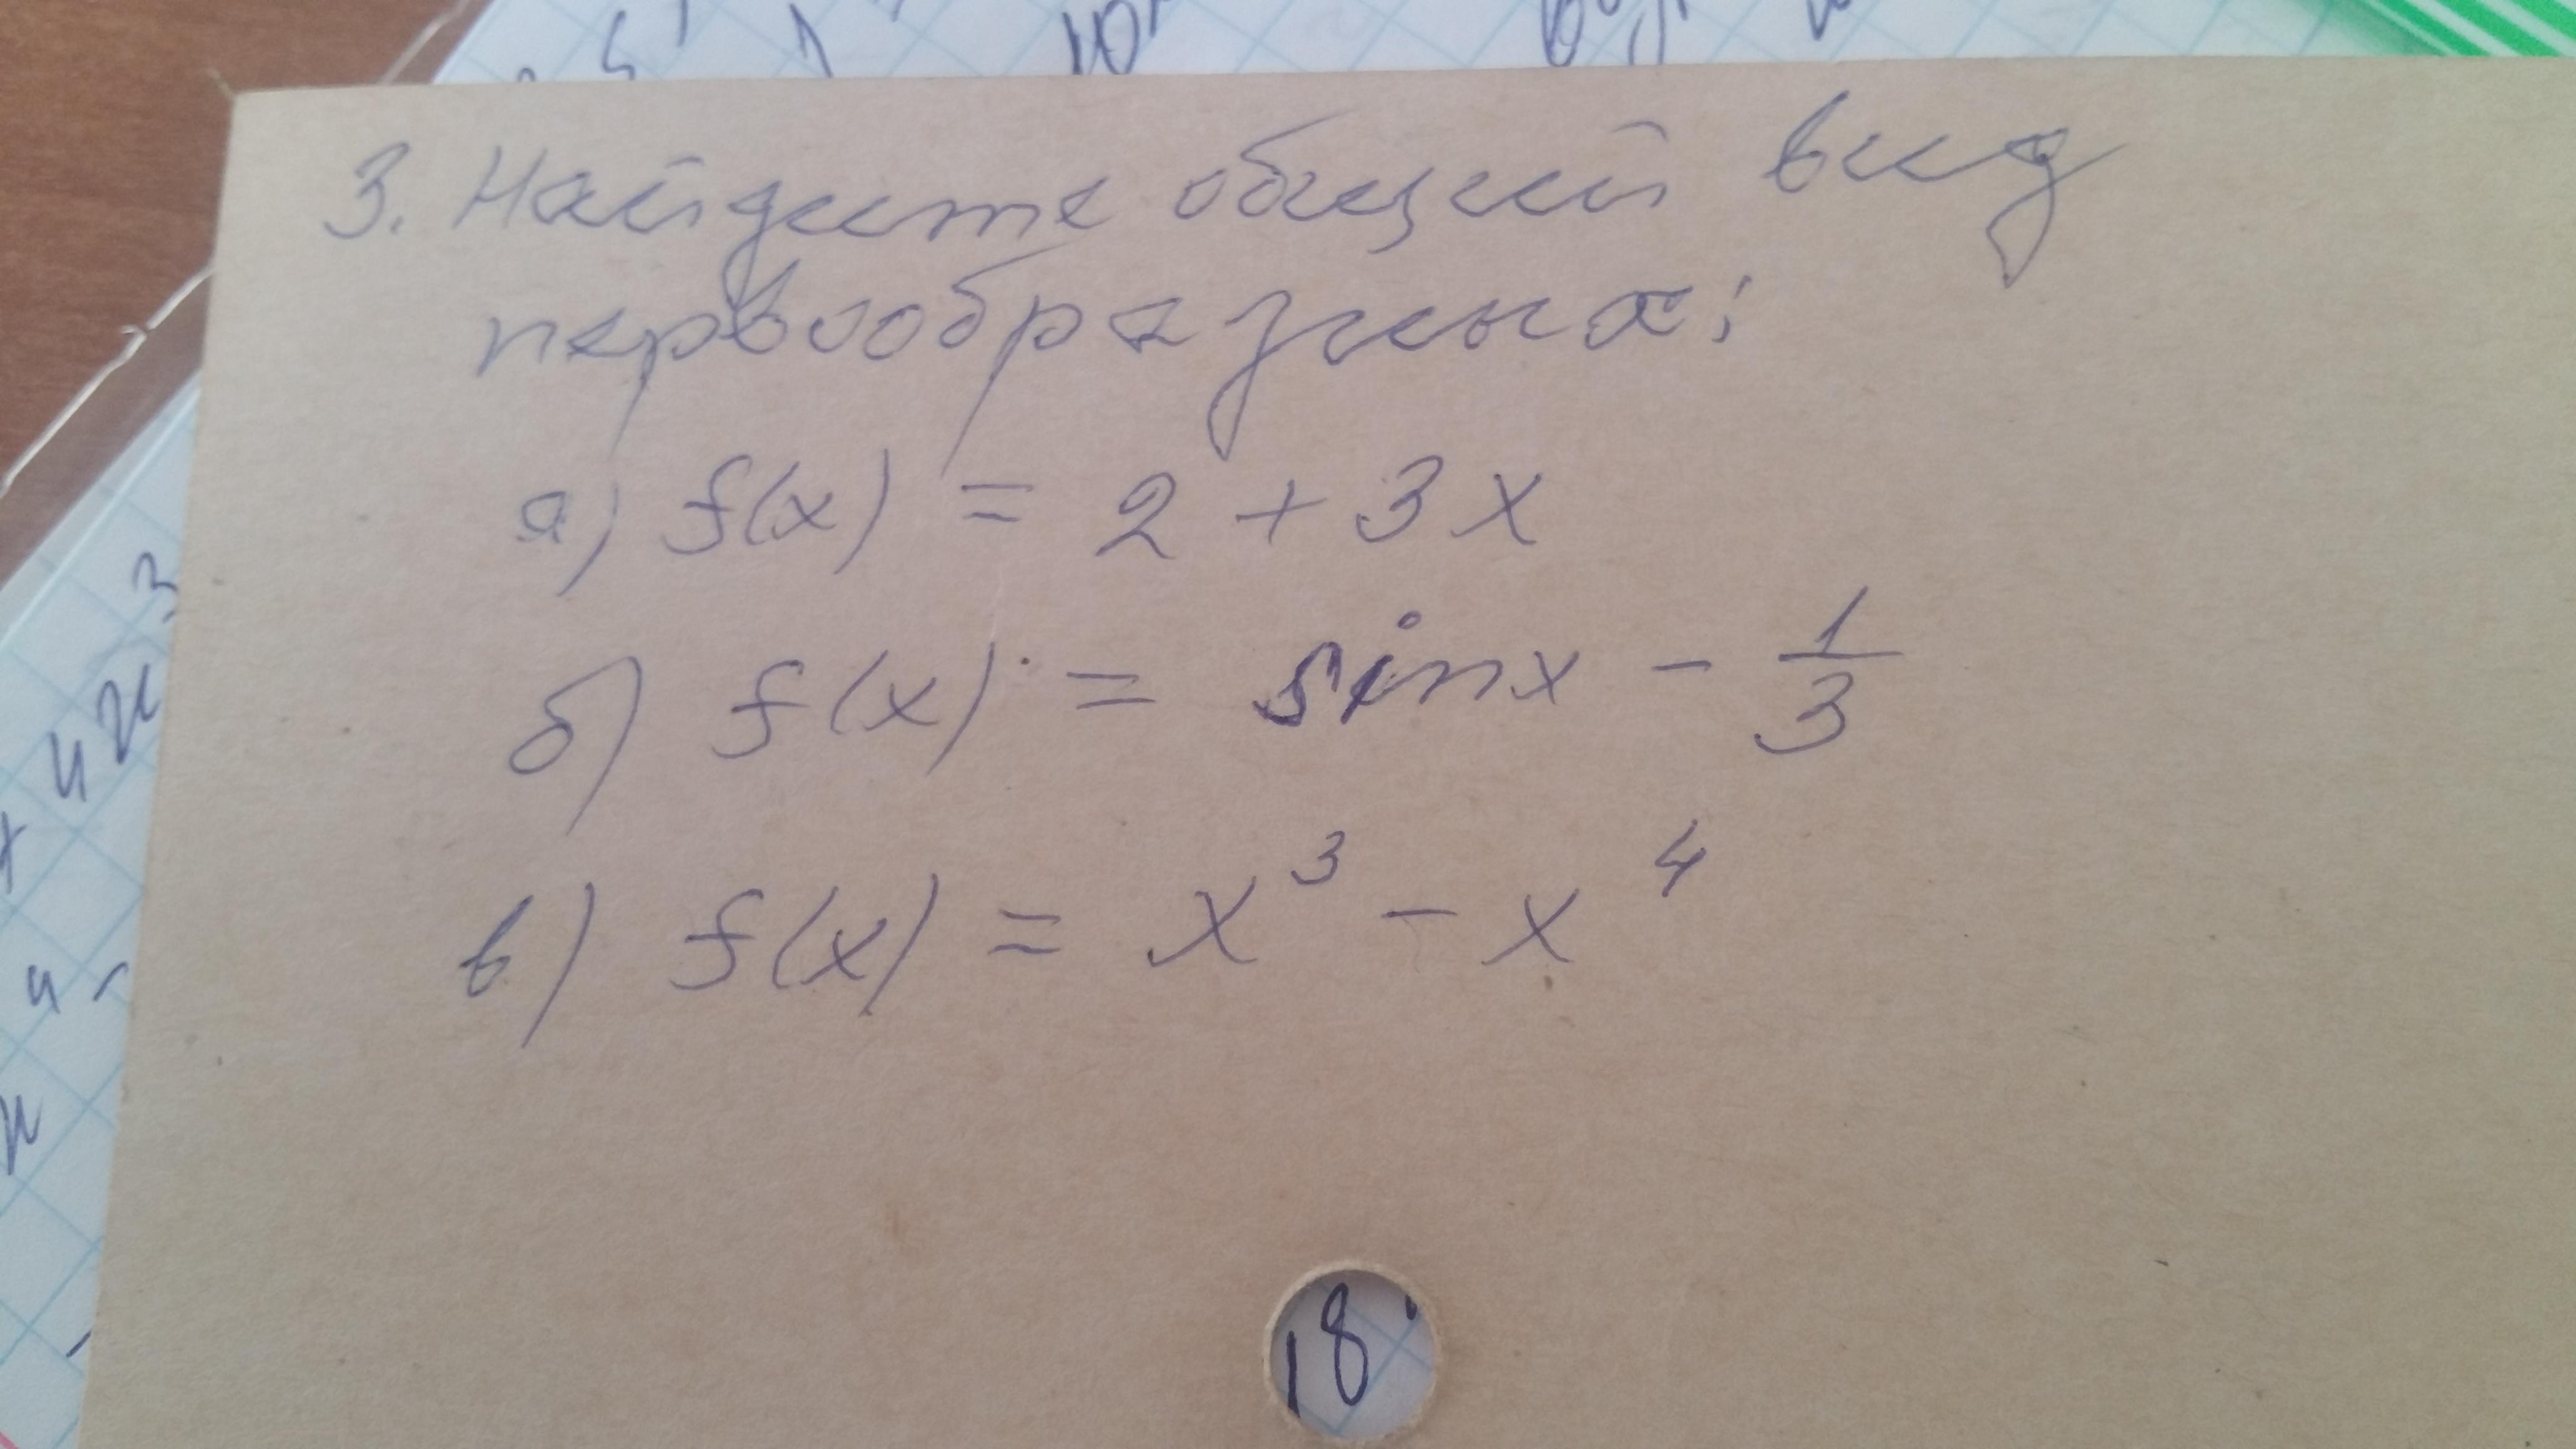 3. Найдите общий вид
первообразных:
а) f(x) = 2 + 3x
б) f(x) = sinx - 1/3
в) f(x) = x³ - x⁴
18